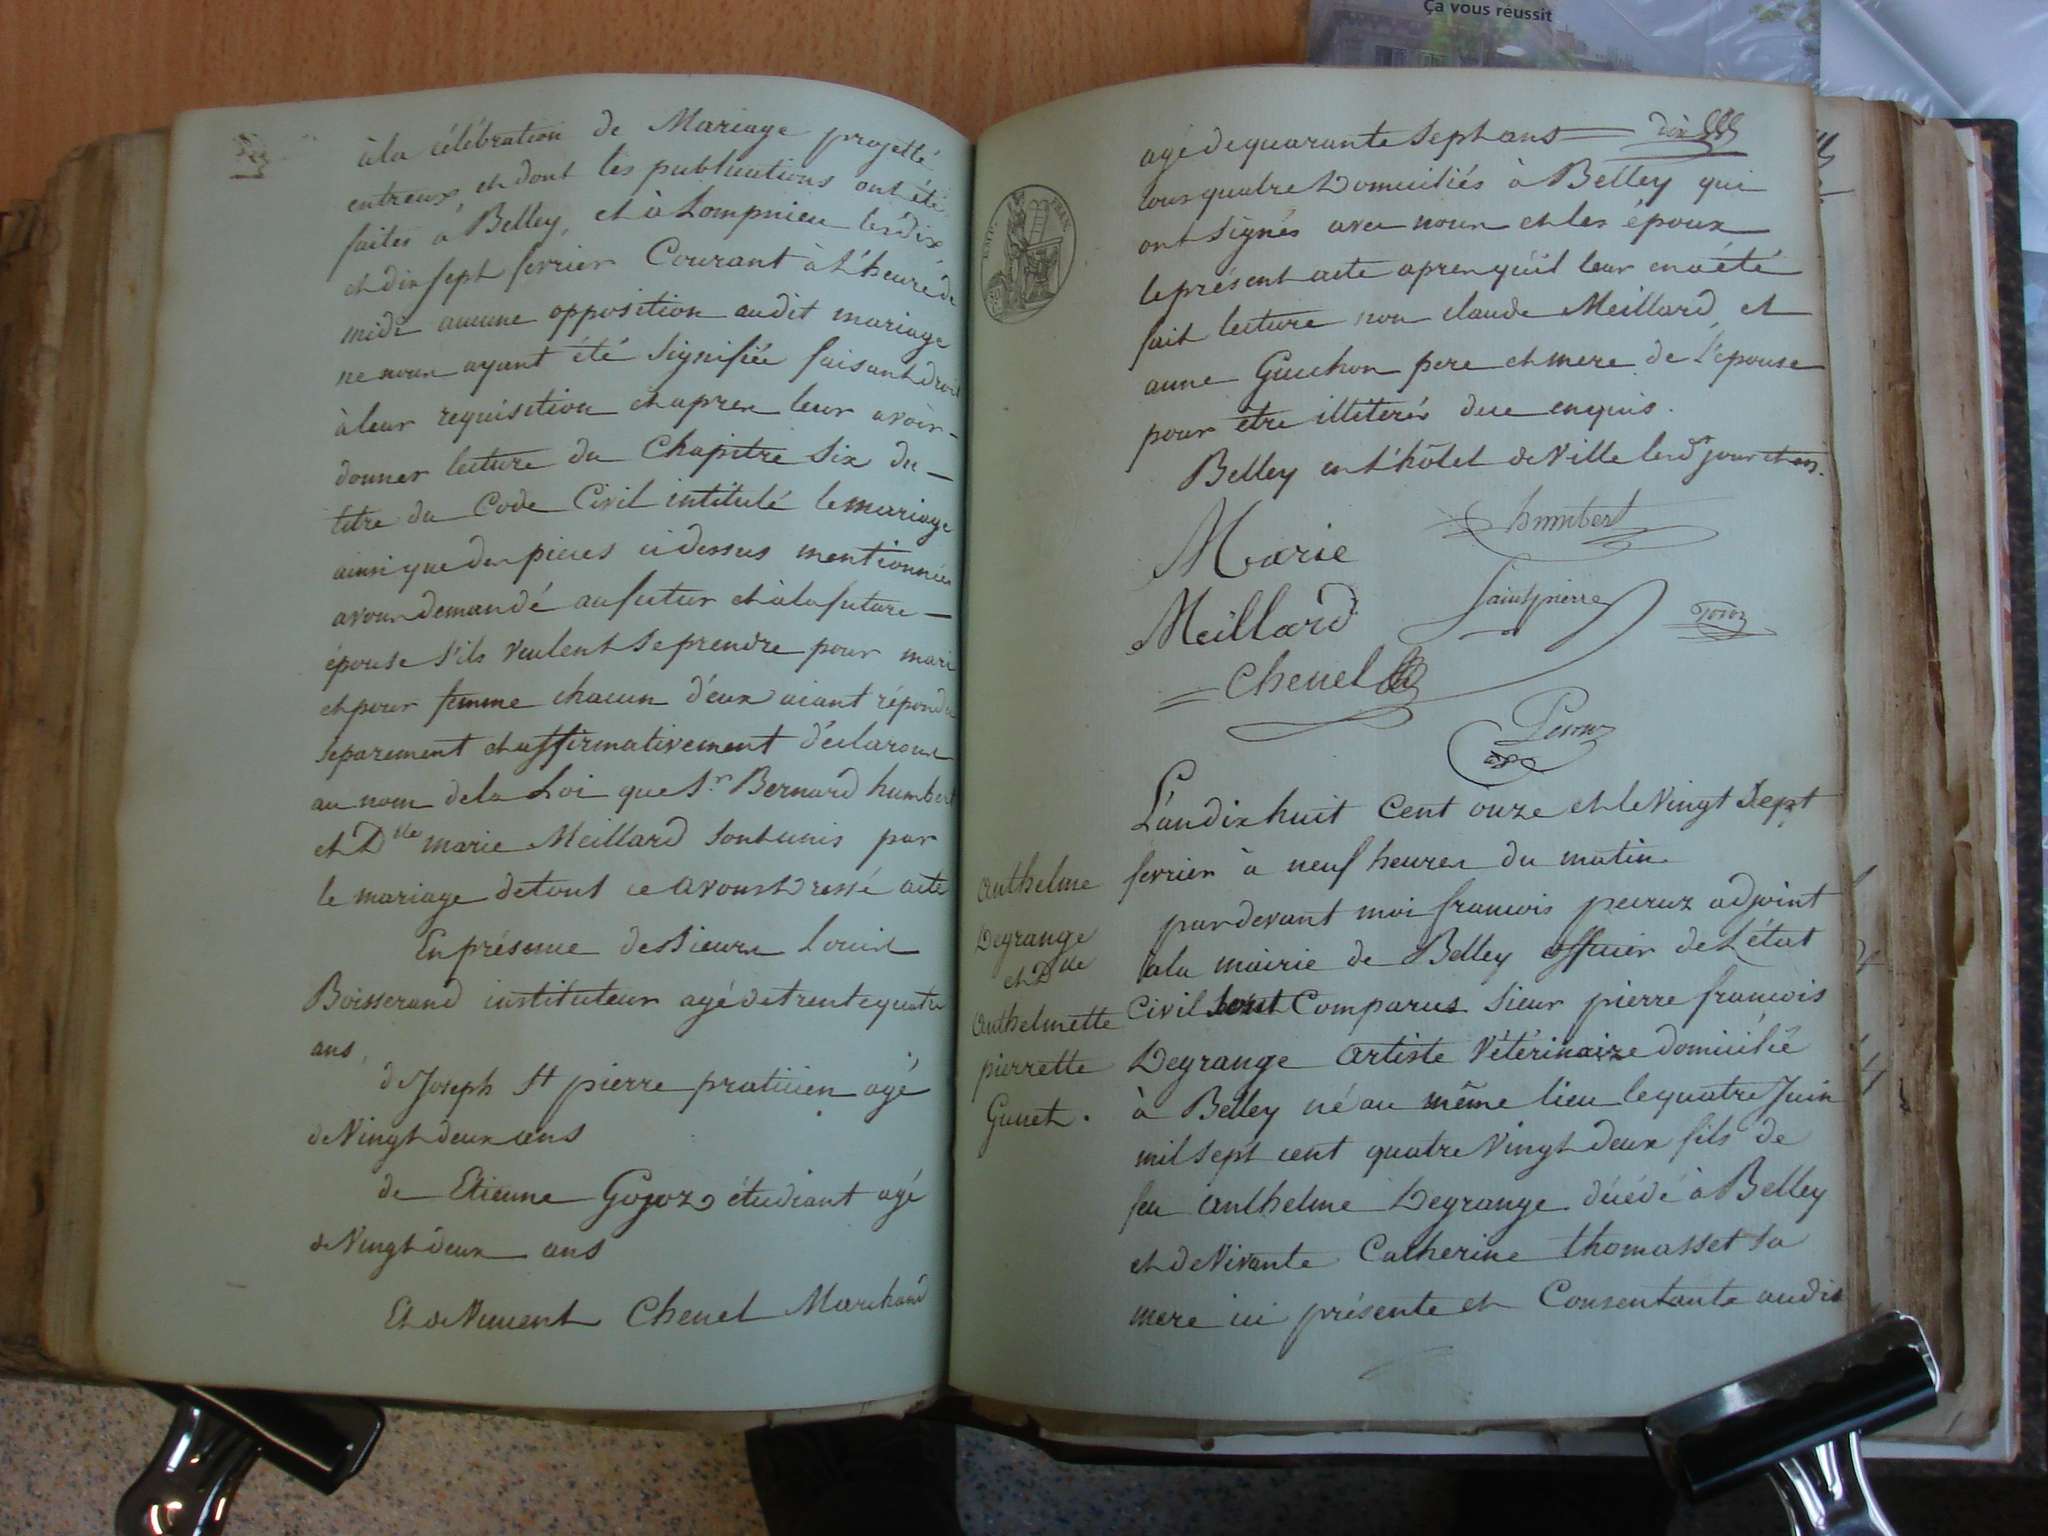 à la célébration de Mariage projetté
entreux, et dont les publications ont été
faites à Belley, et à Lompnieu les dix
et dix sept fevrier Courant à L'heure de
midi aucune opposition audit mariage
ne nous ayant été Signifiée faisant droit
à leur requisition et apres leur avoir
donner lecture du Chapitre Six du
titre du Code Civil intitulé le mariage
ainsi que des pieces ci dessus mentionnées
avons demandé au futur et à la future
épouse S'ils veulent se prendre pour mari
et pour femme chacun d'eux aiant répondu
separement et affirmativement déclarons
au nom de la Loi que Sr Bernard humbert
et Dlle marie Meillard Sont unis par
le mariage de tout ce avons dressé acte
En présence des Sieurs Louis
Boisserand instituteur agé de trente quatre
ans
de Joseph St pierre praticien agé
de Vingt deux ans
de Etienne Gojoz étudiant agé
de Vingt deux ans
Et de Vincent Chenel Marchand
agé de quarante Sept ans dix
tous quatre Domiciliés à Belley qui
ont Signés avec nous et les époux
le présent acte apres qu'il leur en a été
fait lecture non claude Meillard, et
anne Guichon pere et mere de L'epouse
pour être illiterés de ce enquis.
Belley en L'hôtel de Ville lesd. jour et an.
humbert
Marie
Meillard
Saintpierre
Gojoz
Chenel
L'an dix huit Cent onze et le Vingt Sept
fevrier à neuf heures du matin
Anthelme
Degrange
et Dlle
Anthelmette
pierrette
Guuet.
pardevant moi francois peiruz adjoint
a la mairie de Belley officier de L'état
Civil Sont Comparus Sieur pierre francois
Degrange Artiste Vétérinaire domicilié
à Belley né au même lieu le quatre Juin
mil Sept cent quatre Vingt deux fils de
feu Anthelme Degrange décédé à Belley
et de Vivante Catherine thomasset Sa
mere ici présente et Consentante audit
Ça vous réussit